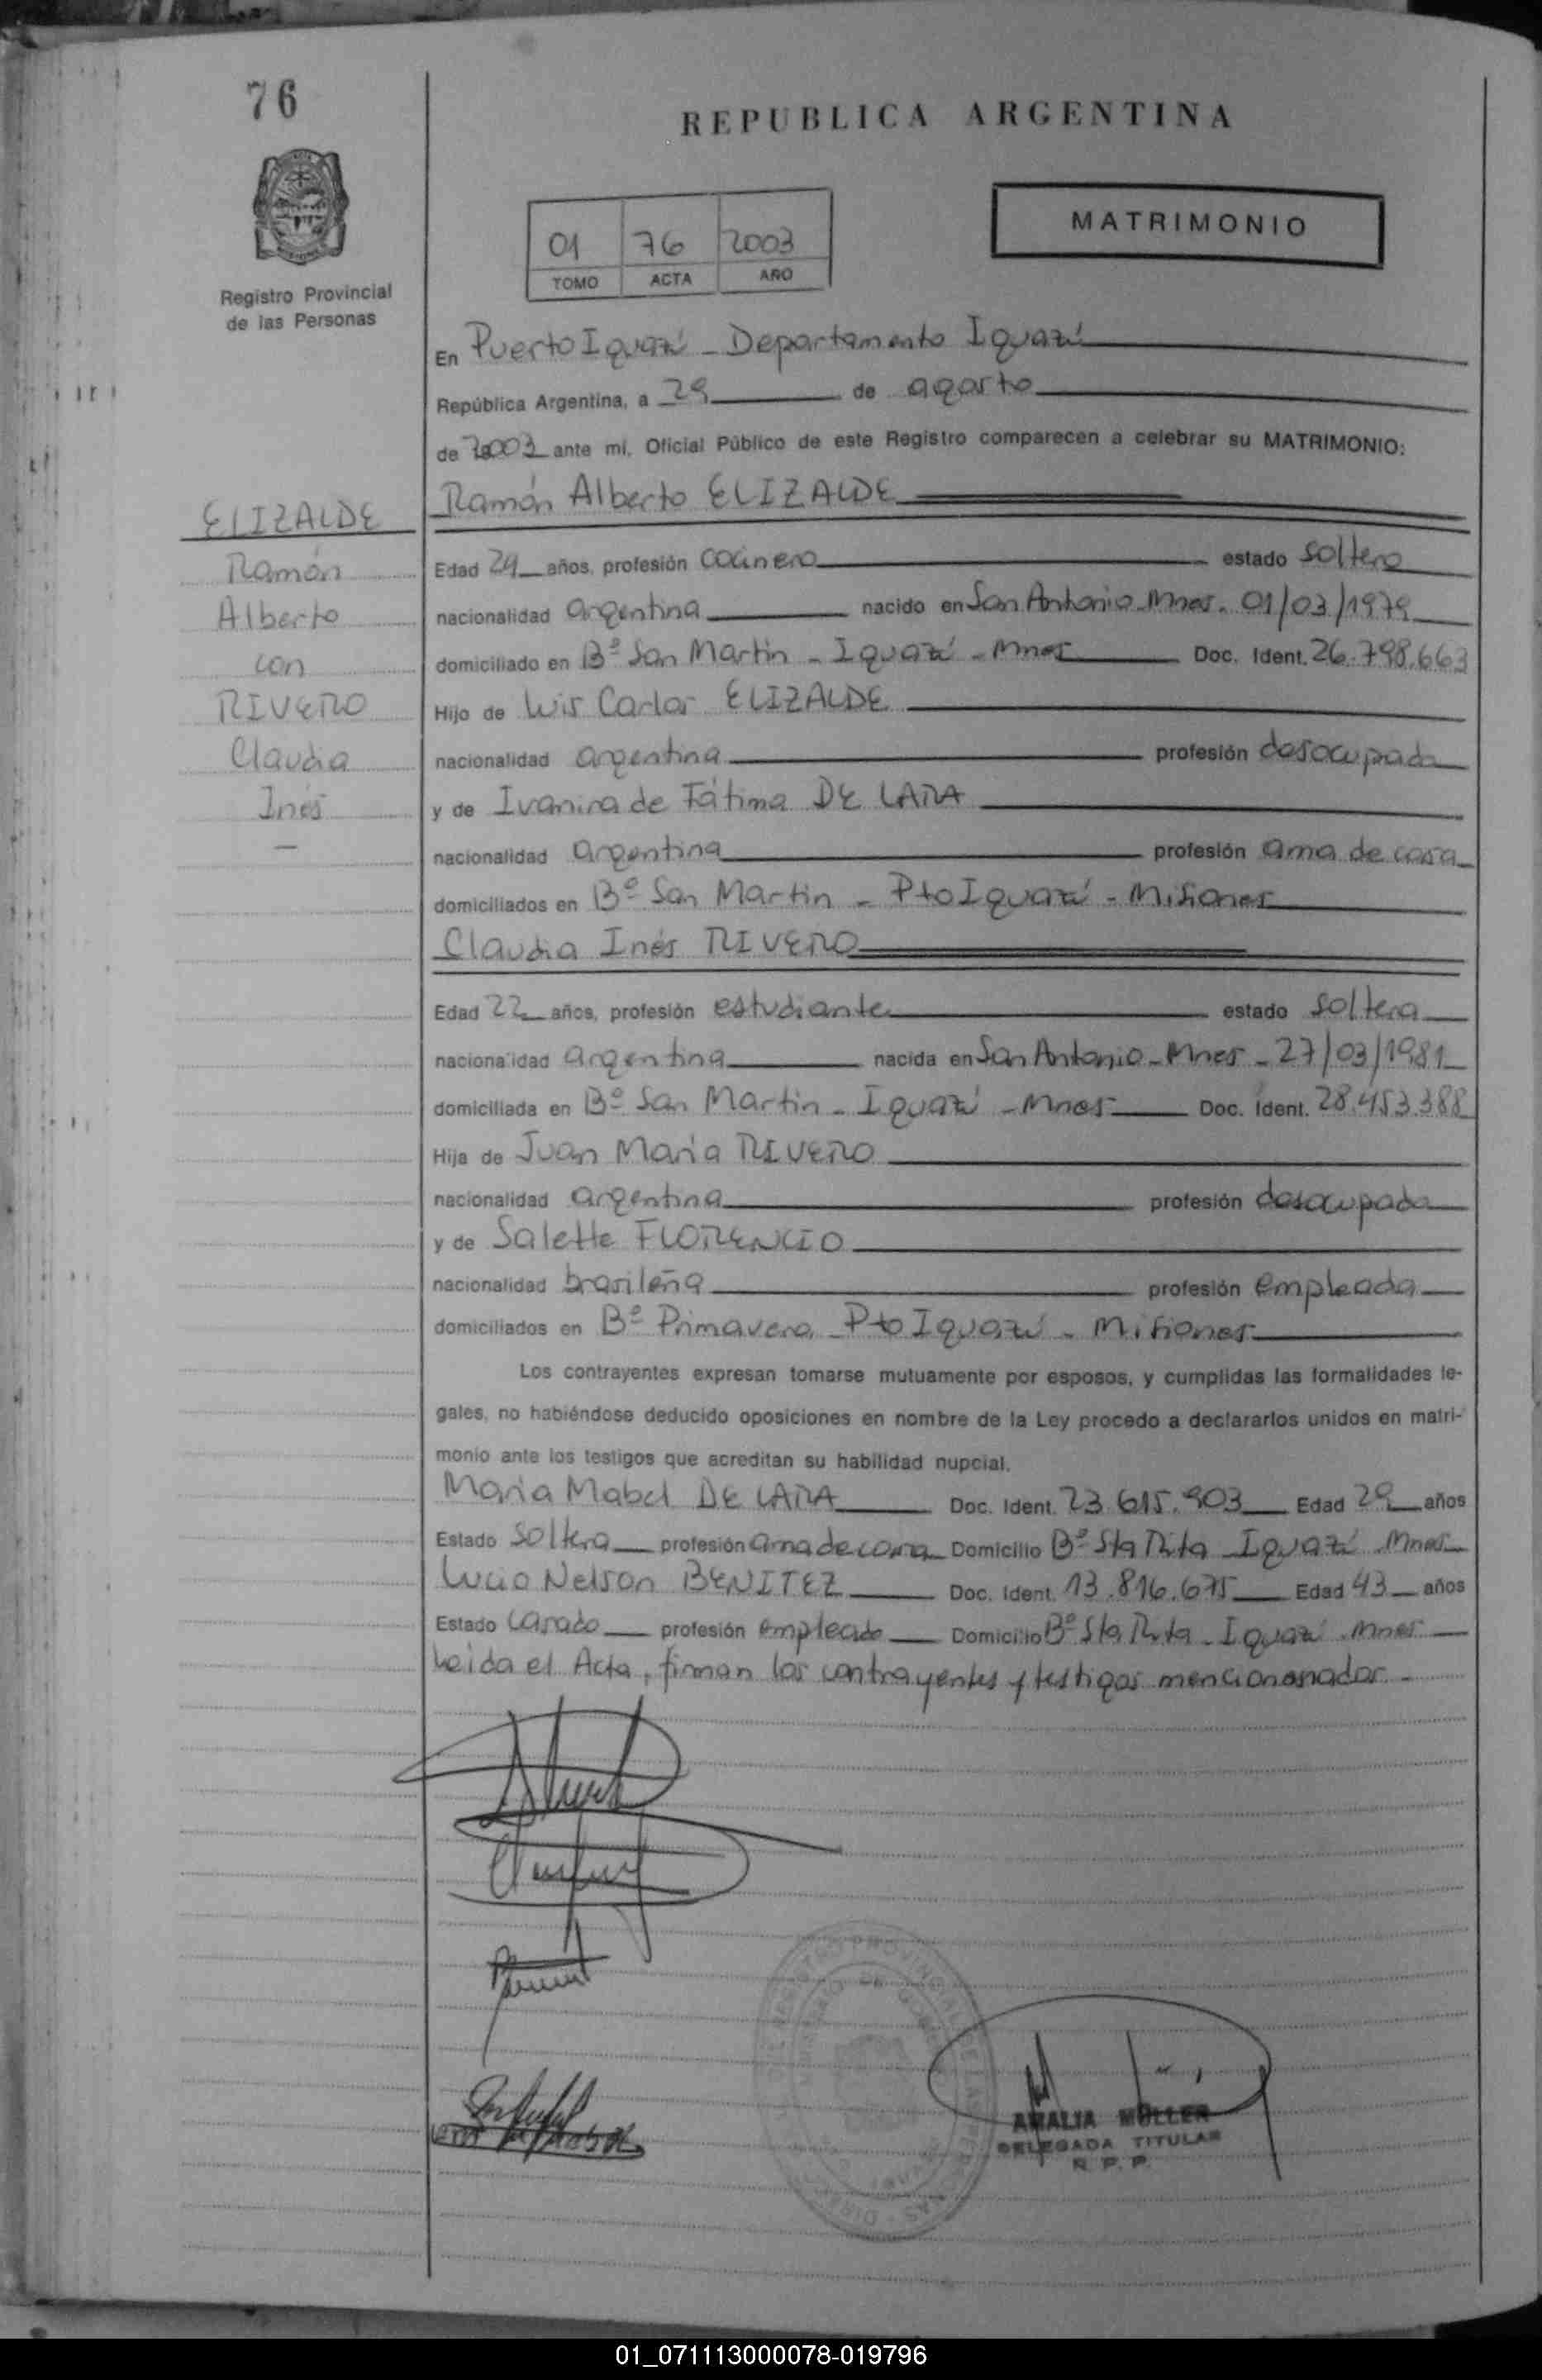 76
REPUBLICA ARGENTINA
01 76 2003
TOMO ACTA AÑO
MATRIMONIO
Registro Provincial
de las Personas
En Puerto Iguazú - Departamento Iguazú
República Argentina, a 29 de agosto
de 2003 ante mi, Oficial Público de este Registro comparecen a celebrar su MATRIMONIO:
Ramón Alberto ELIZALDE
ELIZALDE
Ramón
Alberto
con
RIVERO
Claudia
Inés
Edad 24 años, profesión cocinero estado soltero
nacionalidad argentina nacido en San Antonio Mnes. 01/03/1979
domiciliado en Bº San Martin - Iguazú - Mnes Doc. Ident. 26.798.663
Hijo de Luis Carlos ELIZALDE
nacionalidad argentina profesión desocupado
y de Ivanira de Fátima DE LARA
nacionalidad argentina profesión ama de casa
domiciliados en Bº San Martin - Pto Iguazú - Misiones
Claudia Inés RIVERO
Edad 22 años, profesión estudiante estado soltera
nacionalidad argentina nacida en San Antonio - Mnes - 27/03/1981
domiciliada en Bº San Martin - Iguazú - Mnes Doc. Ident. 28.453.388
Hija de Juan Maria RIVERO
nacionalidad argentina profesión desocupado
y de Salette FLORENCIO
nacionalidad brasileña profesión empleada
domiciliados en Bº Primavera - Pto Iguazú - Misiones
Los contrayentes expresan tomarse mutuamente por esposos, y cumplidas las formalidades le-
gales, no habiéndose deducido oposiciones en nombre de la Ley procedo a declararlos unidos en matri-
monio ante los testigos que acreditan su habilidad nupcial.
Maria Mabel DE LARA Doc. Ident. 23.615.903 Edad 29 años
Estado soltera profesión ama de casa Domicilio Bº Sta Rita Iguazú Mnes
Lucio Nelson BENITEZ Doc. Ident. 13.816.675 Edad 43 años
Estado casado profesión empleado Domicilio Bº Sta Rita - Iguazú - Mnes
Leida el Acta, firman los contrayentes y testigos mencionanados. -
AMALIA MÜLLER
DELEGADA TITULAR
R. P. P.
01_071113000078-019796